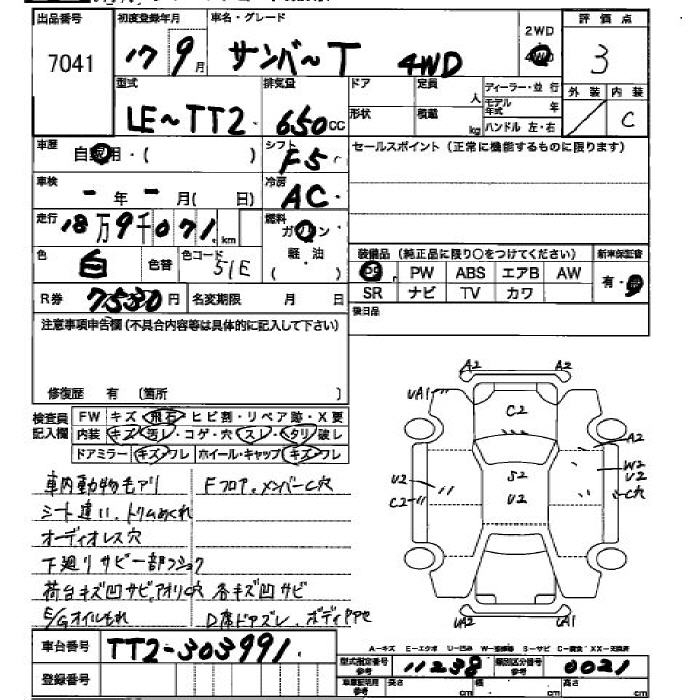 出品番号 初度登録年月 車名・グレード 2WD 評価点
7041 17 9月 サンバーT 4WD 4WD 3
型式 排気量 ドア 定員 人 ディーラー・並行 外装 内装
LE-TT2 650cc 形状 積載 kg モデル年式 年 ハンドル 左・右 C
車歴 自家用・( ) シフト F5 セールスポイント(正常に機能するものに限ります)
車検 - 年 - 月( 日) 冷房 AC
走行 18万9千071km 燃料 ガソリン
色 白 色替 色コード 51E 軽・油 ( ) 装備品(純正品に限り○をつけてください) 新車保証書
PS PW ABS エアB AW 有・無
R券 7530円 名変期限 月 日 SR ナビ TV カワ
注意事項申告欄(不具合内容等は具体的に記入して下さい) 後日品
修復歴 有 〔箇所 〕
検査員記入欄 FW キズ・飛石・ヒビ割・リペア跡・X要
内装 キズ・汚レ・コゲ・穴・スレ・ヘタリ・破レ
ドアミラー キズ・ワレ ホイール・キャップ キズ・ワレ
A2 A2
UA1 C2
A2
S2 W2
U2 U2 U2
C2 C穴
UA1 UA1
車内動物毛アリ Fフロア、メンバーC穴
シート違い、トリムめくれ
オーディオレス穴
下廻りサビ一部フショク
荷台キズ凹サビ,アオリC穴 各キズ凹サビ
E/Gオイルもれ D席ドアズレ、ボディヤケ
車台番号 TT2-303991 A-キズ E-エクボ U-凹み W-補修跡 S-サビ C-腐食 XX-交換済
型式指定番号 参考 11238 類別区分番号 参考 0021
登録番号 車庫証明用 参考 長さ cm 幅 cm 高さ cm